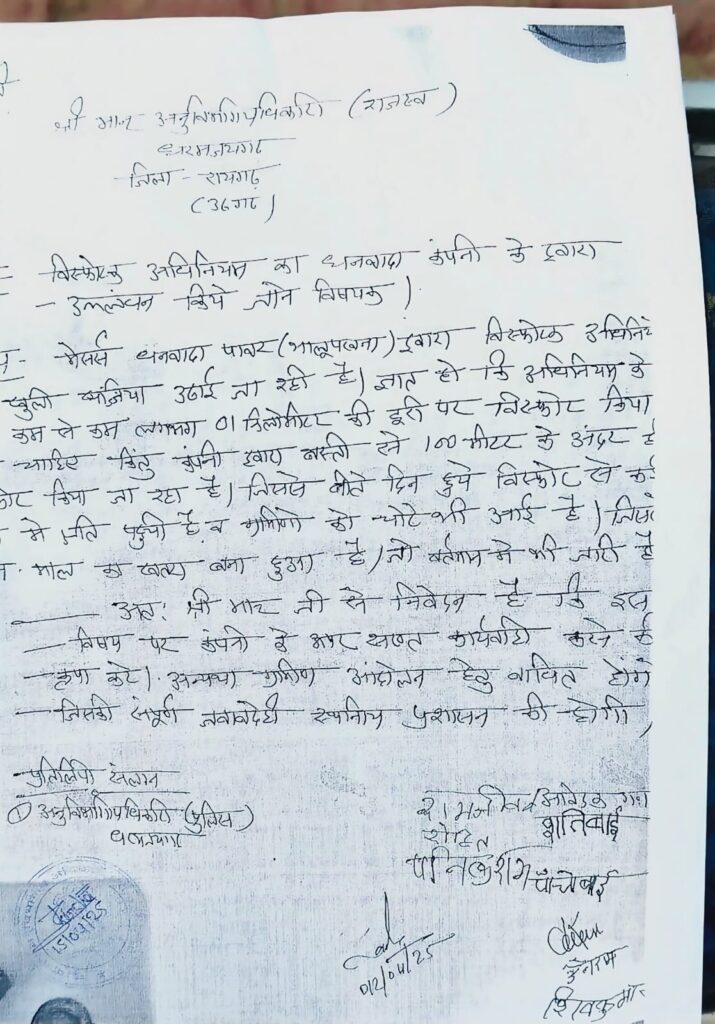 श्री मान अनुविभागिय अधिकारी (राजस्व)
धरमजयगढ
जिला - रायगढ़
(छ०ग०)
विस्फोटक अधिनियम का धनवादा कंपनी के द्वारा
- उल्लंघन किये जाने विषयक।
मेसर्स धनवादा पावर (भालूपखना) द्वारा विस्फोटक
खुली धज्जिया उडाई जा रही है। ज्ञात हो कि अधिनियम के
कम से कम लगभग 01 किलोमीटर की दूरी पर विस्फोट किया
चाहिए किंतु कंपनी द्वारा बस्ती से 100 मीटर के अंदर
किया जा रहा है। जिससे बीते दिन हुये विस्फोट से कई
मे क्षति पहुची है व ग्रामिणो को चोटे भी आई है। जिससे
माल का खतरा बना हुआ है। जो वर्तमान मे भी जारी है
अतः श्री मान जी से निवेदन है कि इस
- विषय पर कंपनी के उपर सख्त कार्यवाही करने की
- कृपा करे। अन्यथा ग्रामिण आंदोलन हेतु बाधित होंगे
- जिसकी संपूर्ण जवाबदेही स्थानिय प्रशासन की होगी।
प्रतिलिपी संलग्न
① अनुविभागिय अधिकारी (पुलिस)
धरमजयगढ
आवेदक गण
शांतिबाई
रोहित
15/04/25
शिवकुमार